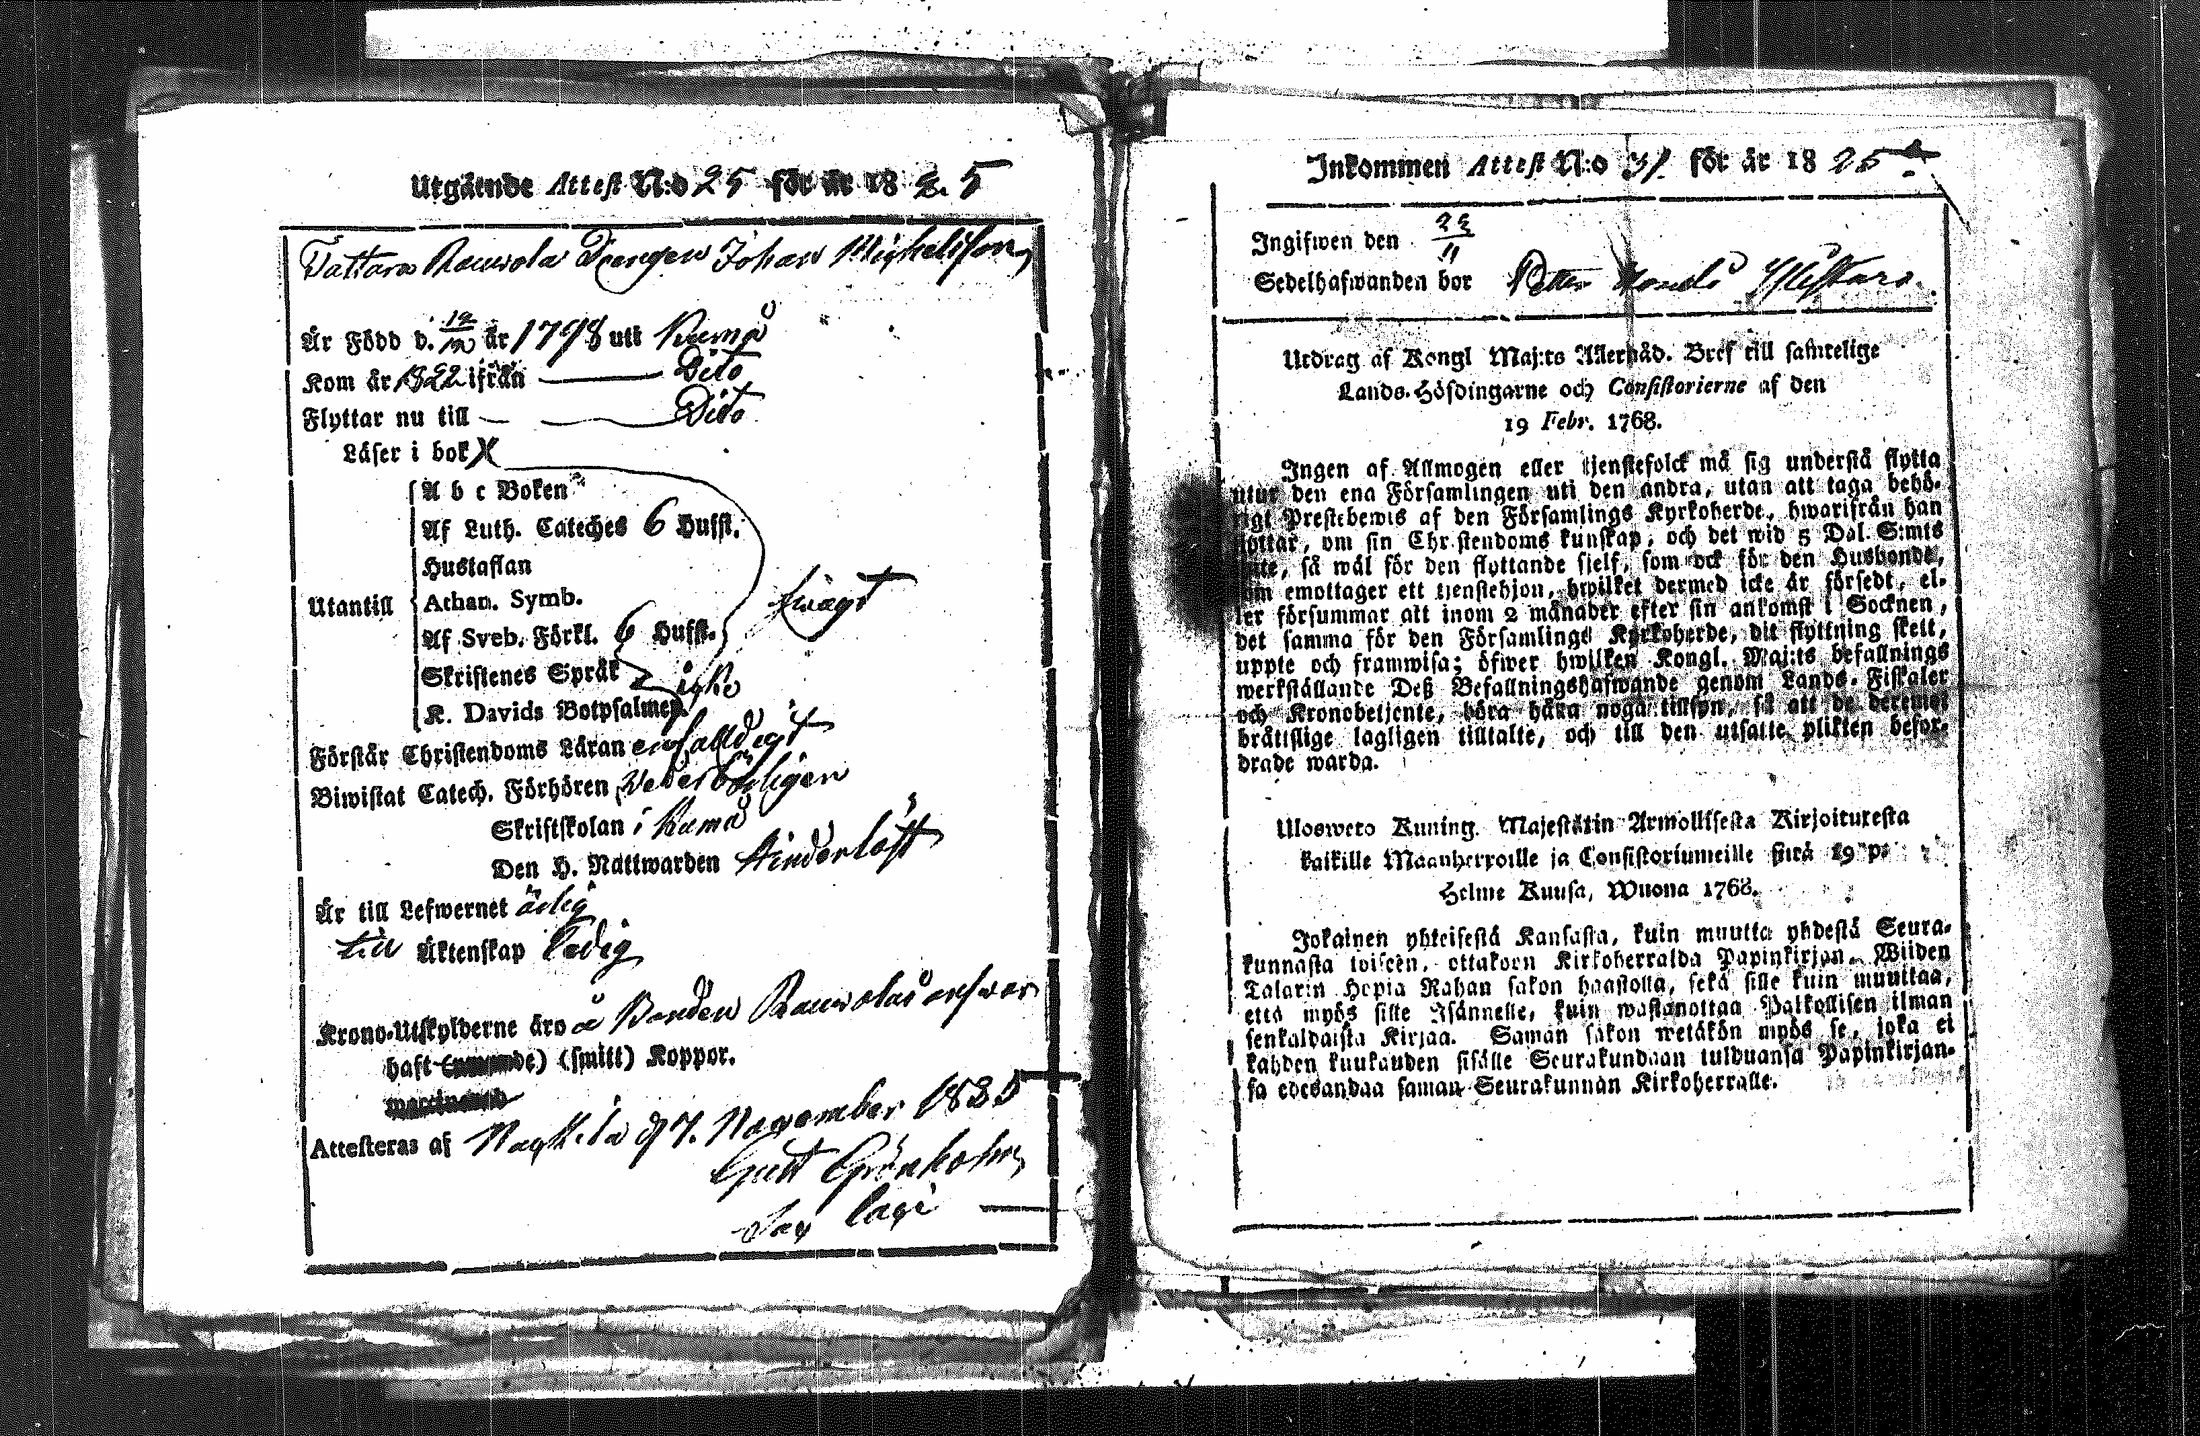 Utgående Attest N:o 25 för år 18 25
Tattara Rauvola Drengen Johan Michelsson
Är Född d. 12/10 år 1798 uti Kumo
Kom år 1822 ifrån Dito
Flyttar nu till Dito
Läser i bok X
A b c Boken
Af Luth. Cateches 6 Hufst.
Hustaflan
Utantill Athan. Symb. swagt
Af Sveb. Förkl. 6 Hufst.
Skriftenes Språk
icke
K. Davids Botpsalmer.
Förstår Christendoms Läran enfalldigt
Biwistat Catech. Förhören vederbörligen
Skriftskolan i Kumo
Den H. Nattwarden hinderlöst
Är till Lefwernet ärlig
till Äktenskap ledig
Krono-Utskylderne äro å Bonden Rauvolas answar
haft (smitt) Koppor.
Attesteras af d 7. November 1825
Gust Grönholm
Inkommen Attest N:o 31 för år 18 25
Ingifwen den 22/11
Sedelhafwanden bor Petter
Utdrag af Kongl Maj:ts Allernåd. Bref till samtelige
Lands-Höfdingarne och Consistorierne af den
19 Febr. 1768.
Ingen af Allmogen eller tjenstefolck må sig understå flytta
utur den ena Församlingen uti den andra, utan att taga behö-
rigt Prestebewis af den Församlings Kyrkoherde, hwarifrån han
flyttar, om sin Christendoms kunskap, och det wid 5 Dal. S:mts
wite, så wäl för den flyttande sjelf, som ock för den Husbonde,
som emottager ett tjenstehjon, hwilket dermed icke är försedt, el-
ler försummar att inom 2 månader efter sin ankomst i Socknen,
det samma för den Församlings Kyrkoherde, dit flyttning skett,
uppte och framwisa; öfwer hwilken Kongl. Maj:ts befallnings
werkställande Deß Befallningshafwande genom Lands-Fiskaler
och Kronobetjente, böra hafwa noga tillsyn, så att de deremot
bråttslige lagligen tilltalte, och till den utsatte plikten befor-
drade warda.
Ulosweto Kuning. Majestätin Armollisesta Kirjoituxesta
kaikille Maanherroille ja Consistoriumeille siitä 19 p:
Helme Kuusa, Wuona 1768.
Jokainen yhteisestä Kansasta, kuin muutta yhdestä Seura-
kunnasta toiseen, ottakoen Kirkoherralda Papinkirjan. Wiiden
Talarin Hopia Rahan sakon haastolla, sekä sille kuin muuttaa,
että myös sille Isännelle, kuin wastanottaa Palkollisen ilman
senkaldaista Kirjaa. Saman sakon wetäkön myös se, joka ei
kahden kuukauden sisälle Seurakundaan tulduansa Papinkirjan-
sa edesandaa saman Seurakunnan Kirkoherralle.